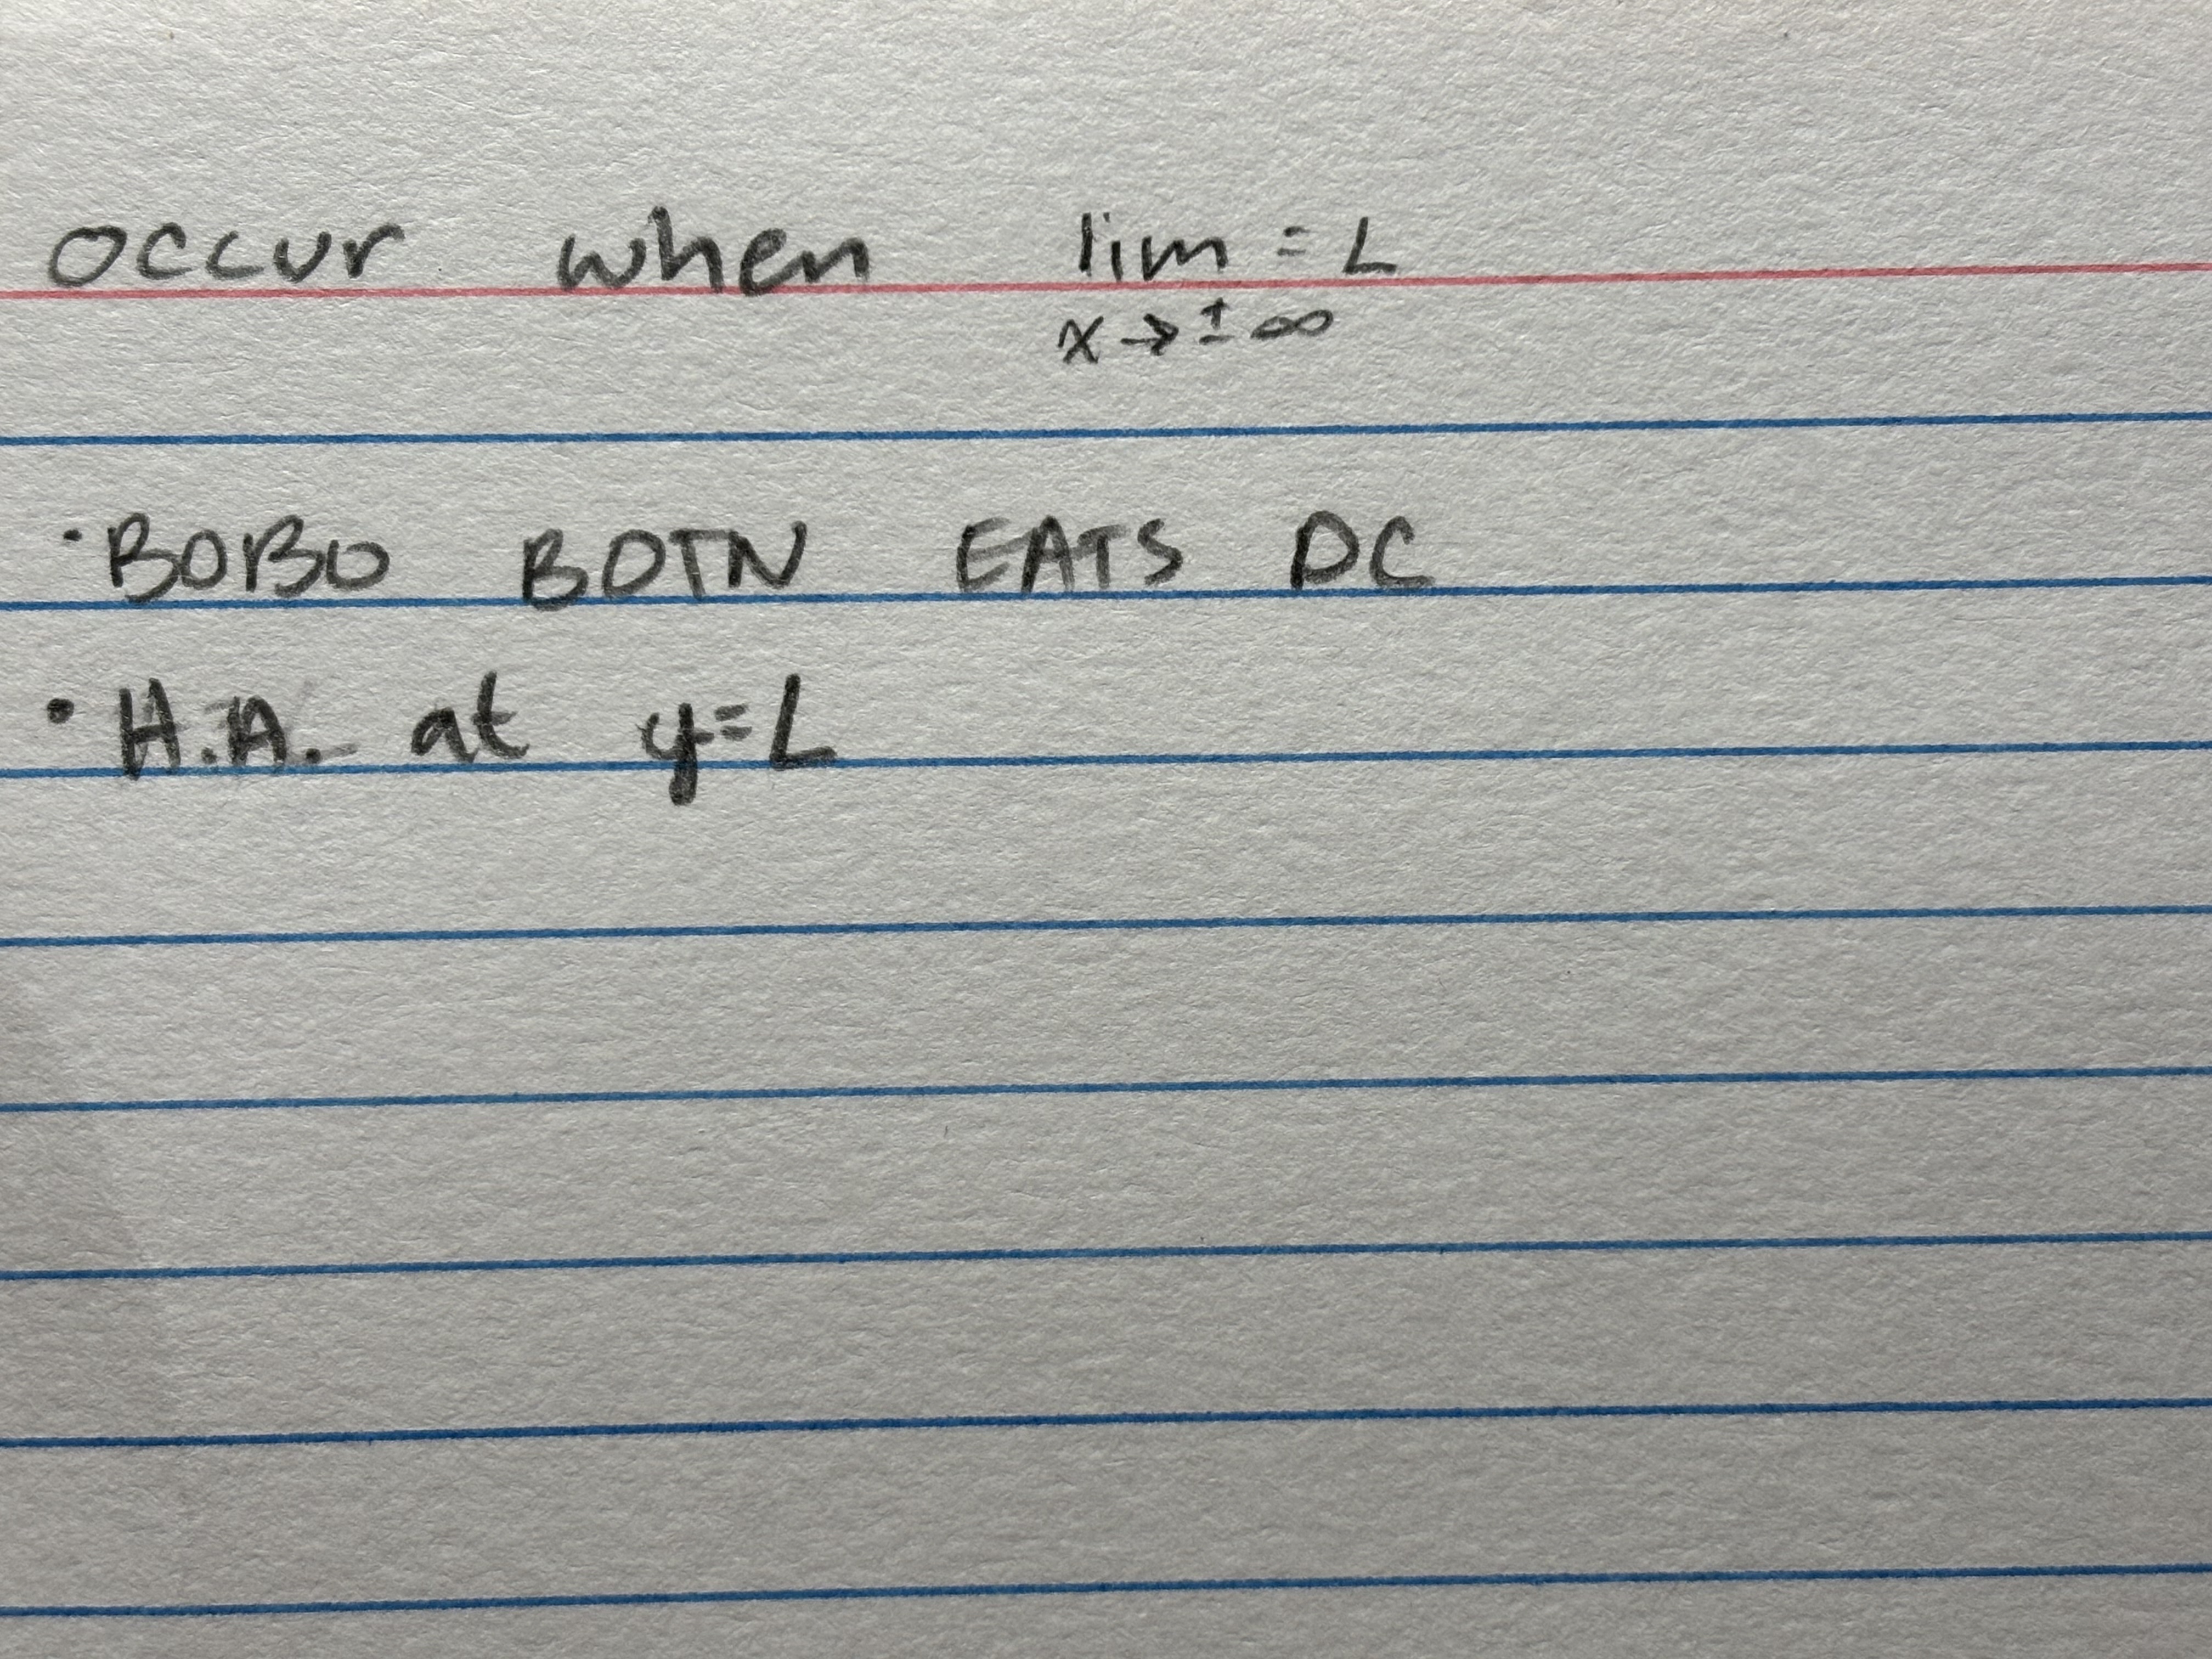 occur when lim = L
x → ± ∞
· BOBO BOTN EATS DC
· H.A. at y=L